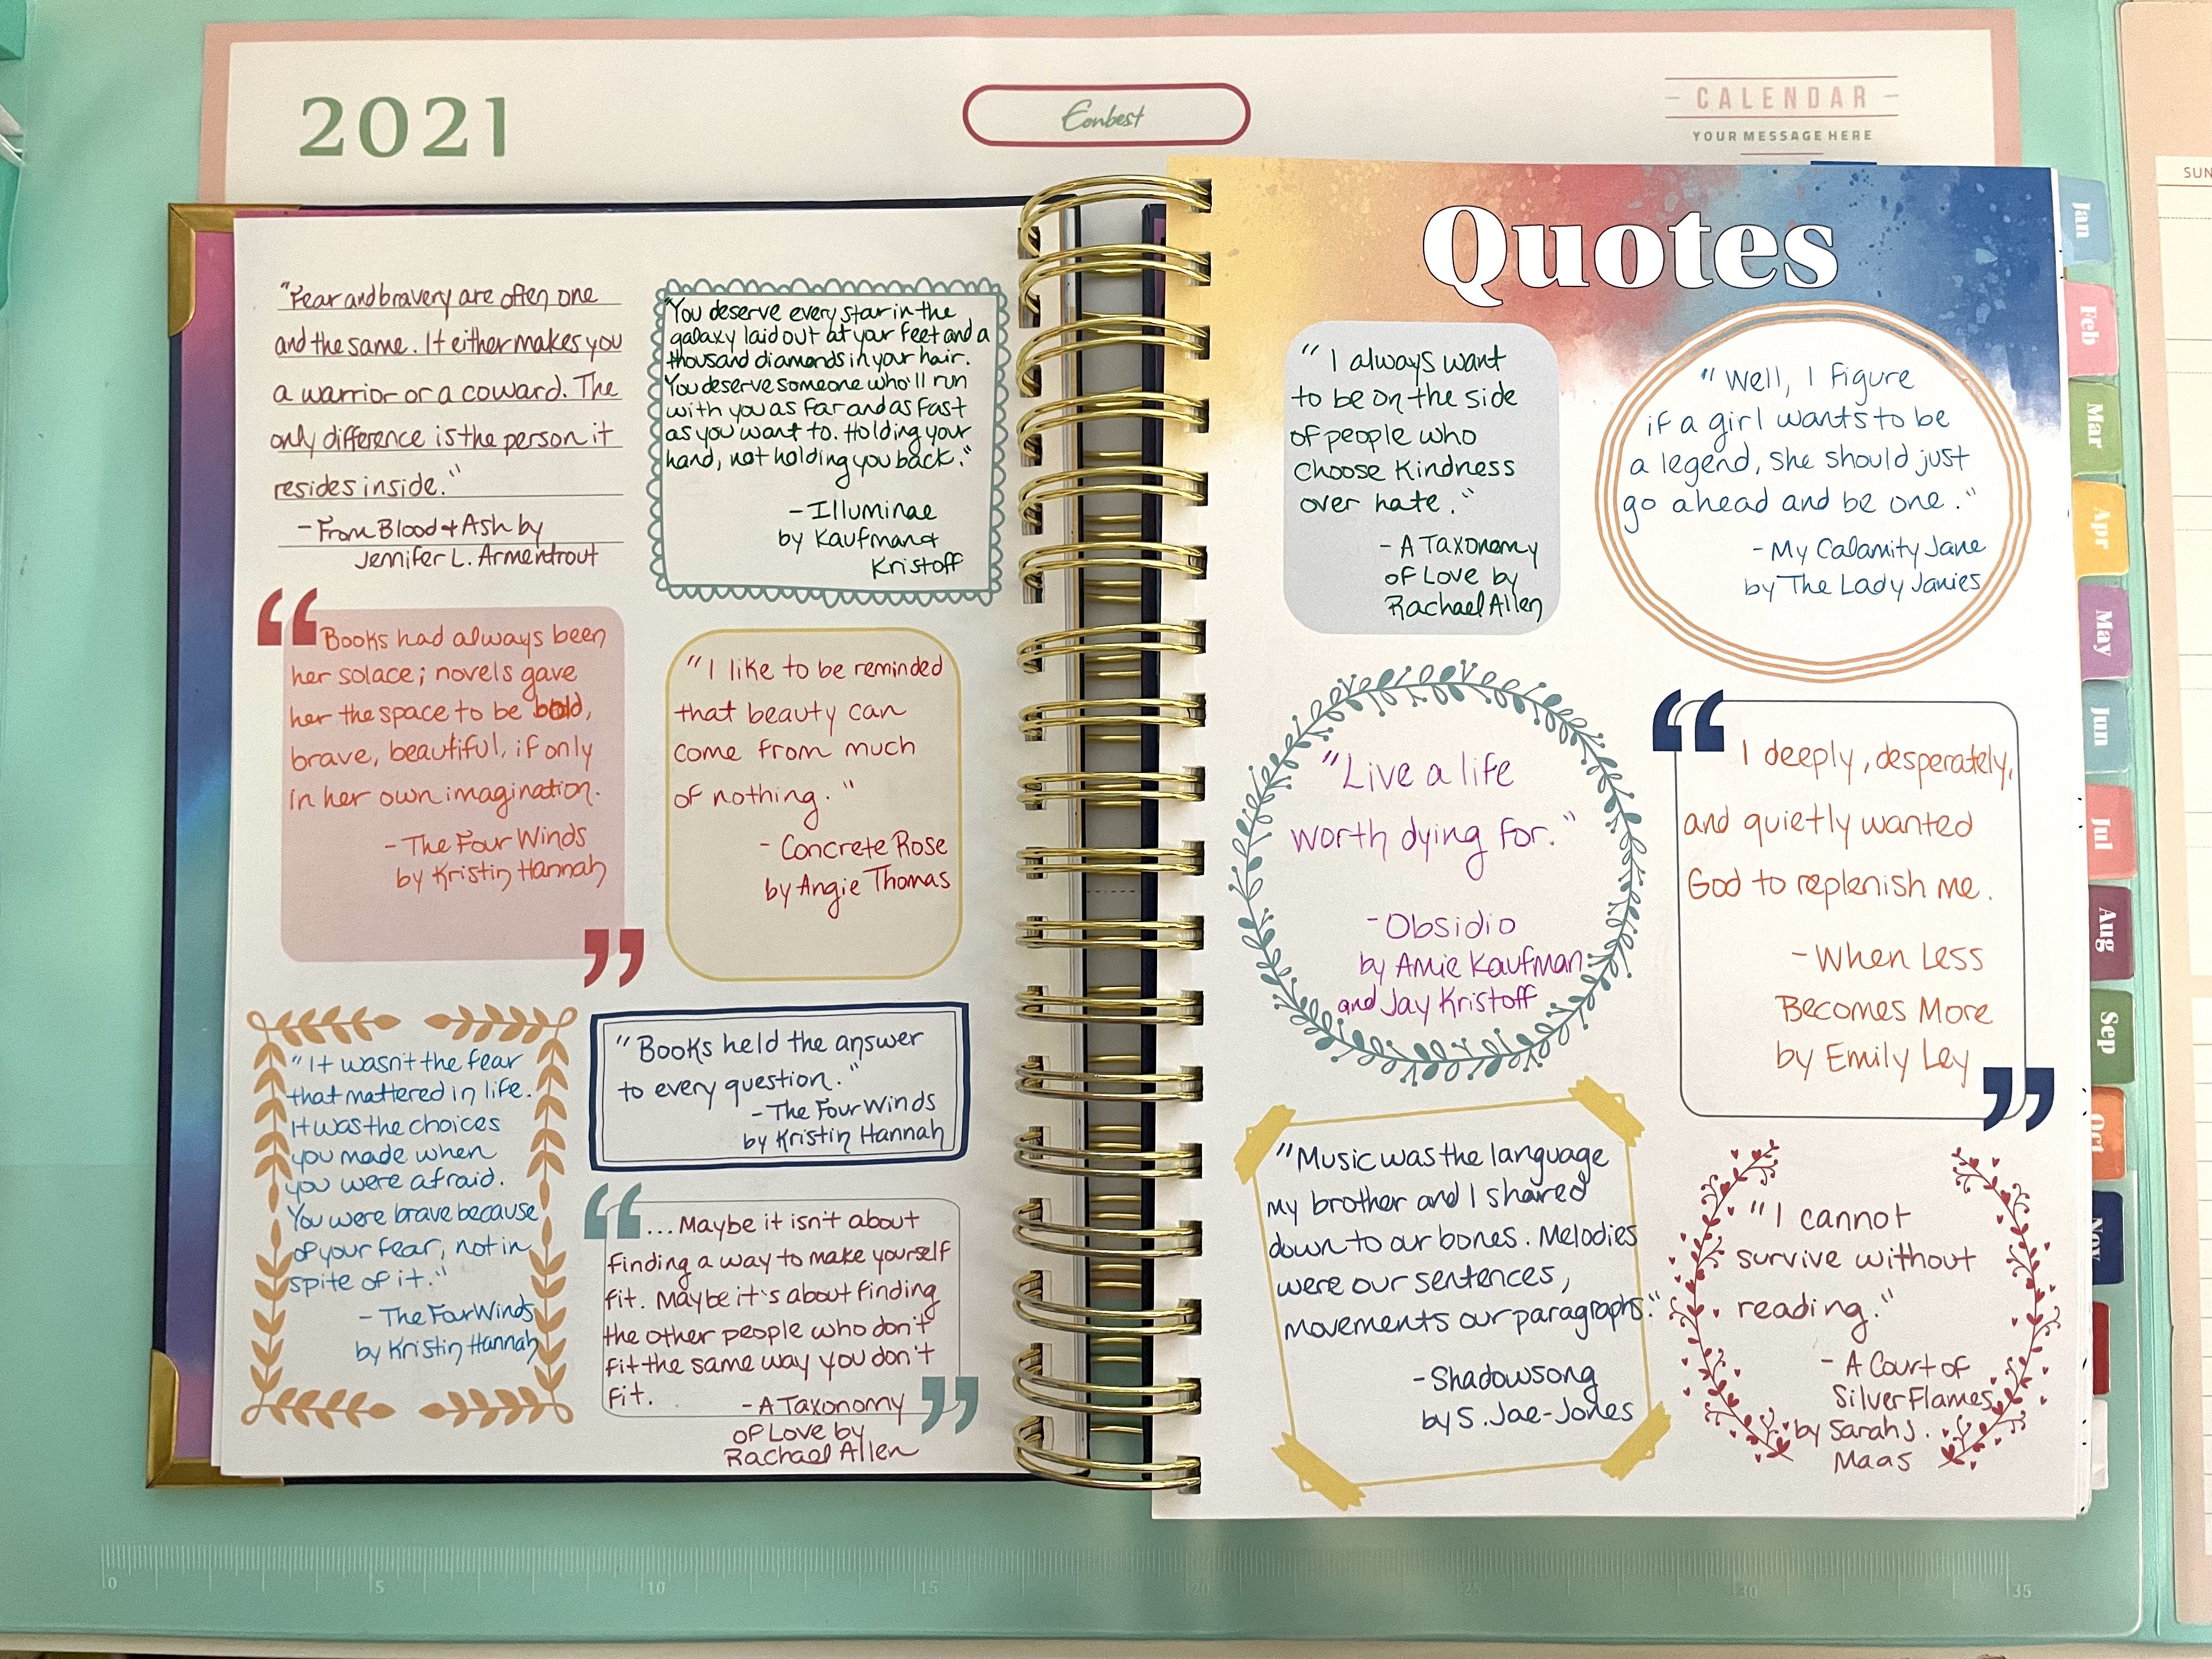 2021
Eonbest
CALENDAR
YOUR MESSAGE HERE
SUN
"Fear and bravery are often one
and the same. It either makes you
a warrior or a coward. The
only difference is the person it
resides inside."
- From Blood & Ash by
Jennifer L. Armentrout
"You deserve every star in the
galaxy laid out at your feet and a
thousand diamonds in your hair.
You deserve someone who'll run
with you as far and as fast
as you want to. Holding your
hand, not holding you back."
- Illuminae
by Kaufman &
Kristoff
“ Books had always been
her solace; novels gave
her the space to be bold,
brave, beautiful, if only
in her own imagination.
- The Four Winds
by Kristin Hannah
”
"I like to be reminded
that beauty can
come from much
of nothing."
- Concrete Rose
by Angie Thomas
"It wasn't the fear
that mattered in life.
It was the choices
you made when
you were afraid.
You were brave because
of your fear, not in
spite of it."
- The Four Winds
by Kristin Hannah
"Books held the answer
to every question."
- The Four Winds
by Kristin Hannah
“ ... Maybe it isn't about
finding a way to make yourself
fit. Maybe it's about finding
the other people who don't
fit the same way you don't
fit.
- A Taxonomy
of Love by
Rachael Allen
”
Quotes
"I always want
to be on the side
of people who
choose kindness
over hate."
- A Taxonomy
of Love by
Rachael Allen
"Well, I figure
if a girl wants to be
a legend, she should just
go ahead and be one."
- My Calamity Jane
by The Lady Janies
"Live a life
worth dying for."
- Obsidio
by Amie Kaufman
and Jay Kristoff
“ I deeply, desperately,
and quietly wanted
God to replenish me.
- When Less
Becomes More
by Emily Ley
”
"Music was the language
my brother and I shared
down to our bones. Melodies
were our sentences,
movements our paragraphs."
- Shadowsong
by S. Jae-Jones
"I cannot
survive without
reading."
- A Court of
Silver Flames
by Sarah J.
Maas
Jan
Feb
Mar
Apr
May
Jun
Jul
Aug
Sep
Oct
Nov
0 5 10 15 20 25 30 35